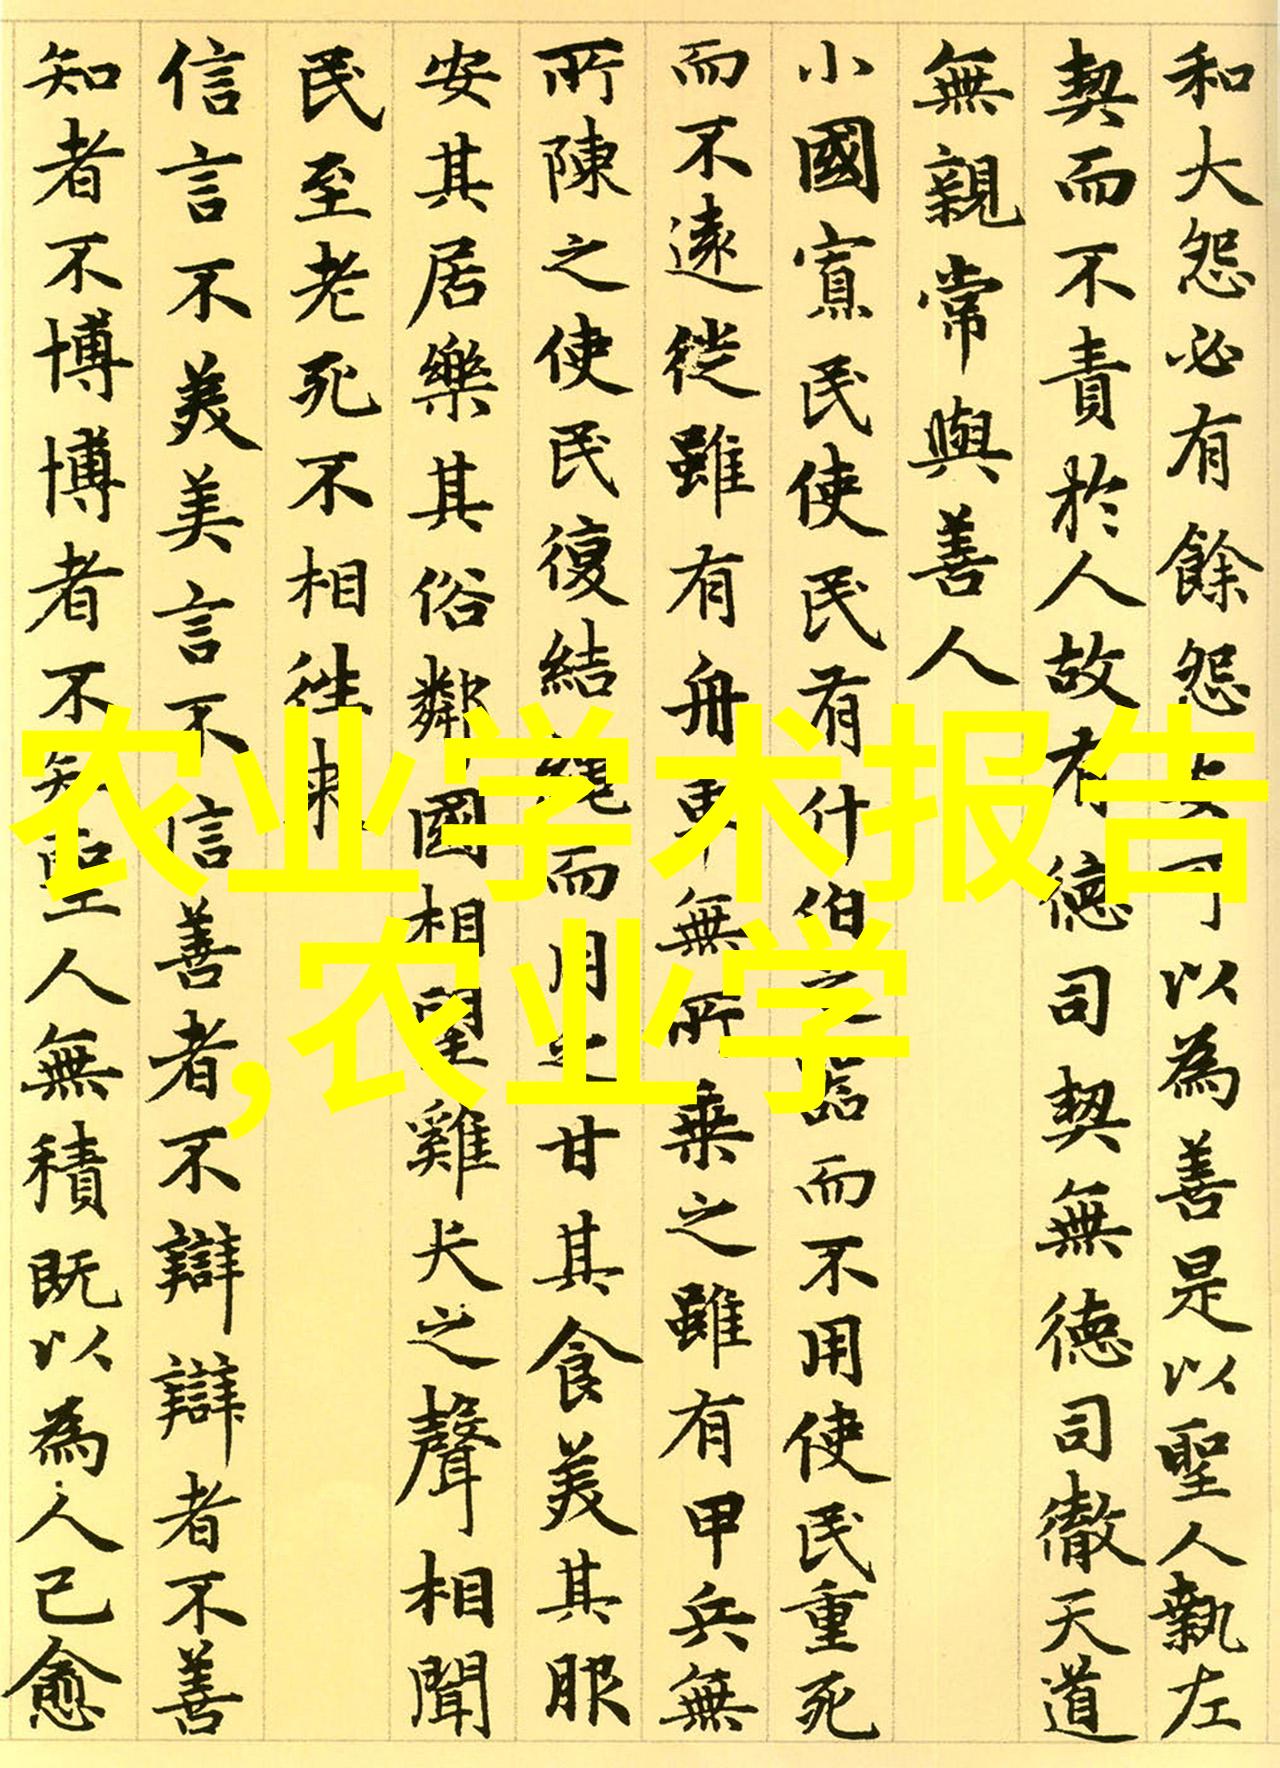 和大怨必有餘怨安可以為善是以聖人執左
契而不責於人故有德司契無德司徹天道
無親常與善人
小國寡民使民有什伯之器而不用使民重死
而不遠徙雖有舟車無所乗之雖有甲兵無
所陳之使民復結繩而用之甘其食美其服
安其居樂其俗鄰國相望雞犬之聲相聞
民至老死不相往来
信言不美美言不信善者不辯辯者不善
知者不博博者不知聖人無積既以為人己愈
农业学术报告
,农业学